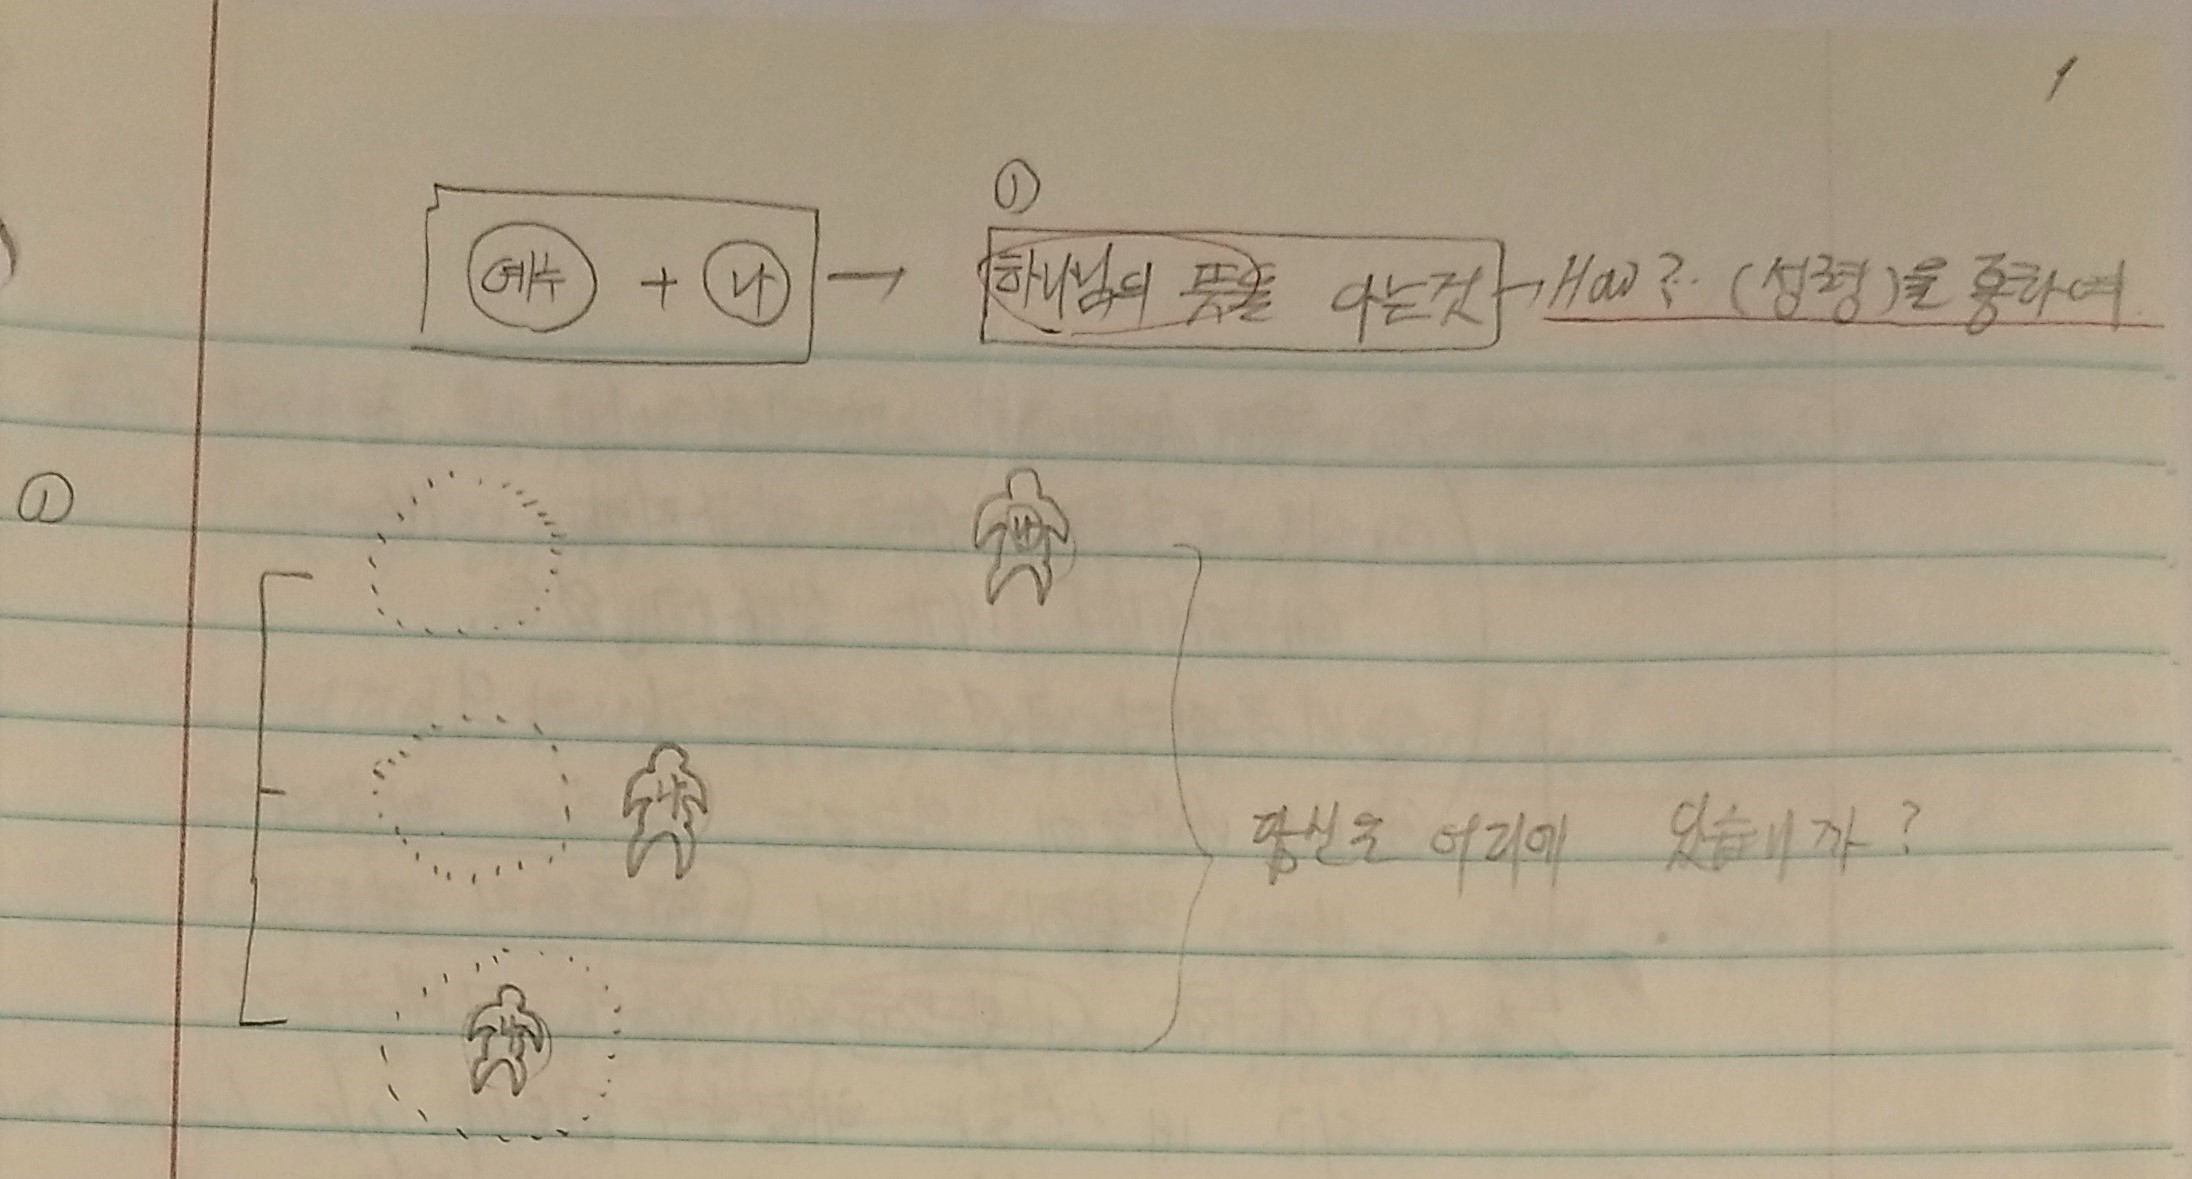 1
①
예수 + 나 → 하나님의 뜻을 아는것 → How? (성령)을 통하여
①
나
나
당신은 어디에 있습니까?
나